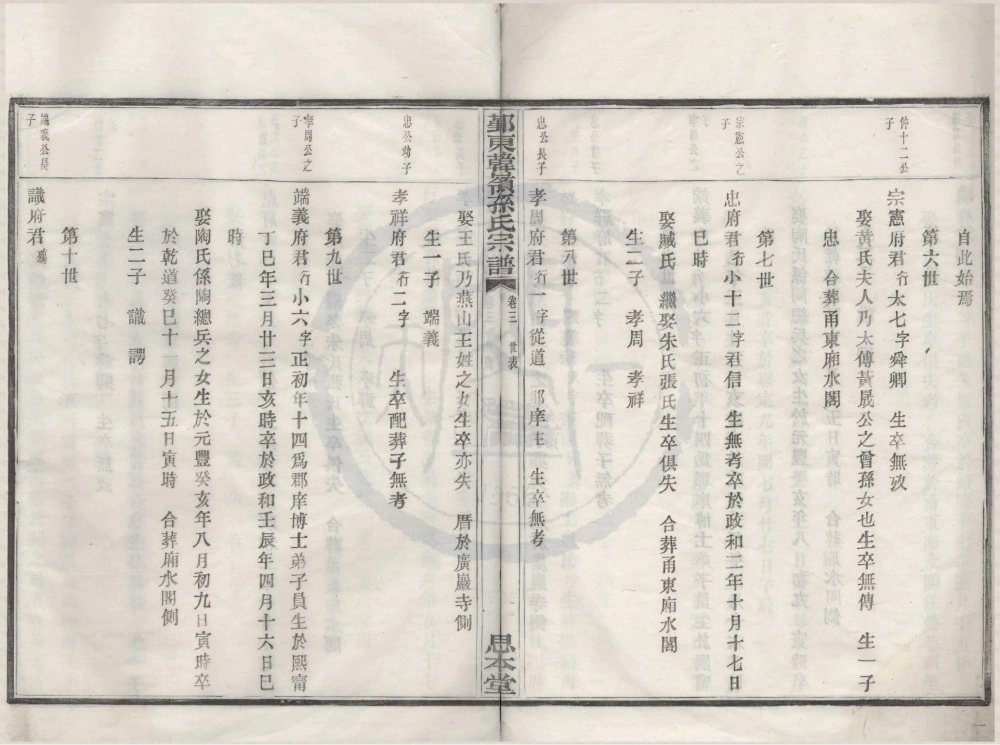 自此始焉
第六世
仲十二公子
宗憲府君行太七字舜卿 生卒無攷
娶黃氏夫人乃太傅黃晟公之曾孫女也生卒無傳 生一子
忠 合葬甬東廂水閣
第七世
宗憲公之子
忠府君行小十二字君信亥生無考卒於政和二年十月十七日
巳時
娶臧氏世 繼娶朱氏張氏生卒俱失 合葬甬東廂水閣
生二子 孝周 孝祥
第八世
忠公長子
孝周府君行一字從道 郡庠生 生卒無考
鄞東韓嶺孫氏宗譜 卷三 世表 思本堂
娶王氏乃燕山王姓之女生卒亦失 厝於廣嚴寺側
生一子 端義
忠公幼子
孝祥府君行二字 生卒配葬子無考
第九世
孝周公之子
端義府君行小六字正初年十四爲郡庠博士弟子員生於熙甯
丁巳年三月廿三日亥時卒於政和壬辰年四月十六日巳
時
娶陶氏係陶總兵之女生於元豐癸亥年八月初九日寅時卒
於乾道癸巳十一月十五日寅時 合葬廂水閣側
生二子 識 諤
第十世
端義公長子
識府君